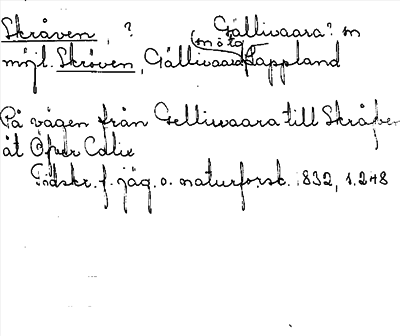 Skråven, ? Gällivaara? sn
(snötg
möjl. Skröven, Gällivaara Lappland
På vägen från Gelliwaara till Skråfven
åt Öfver Calix
Tidskr. f. jäg. o. naturforsk. 1832, s. 248